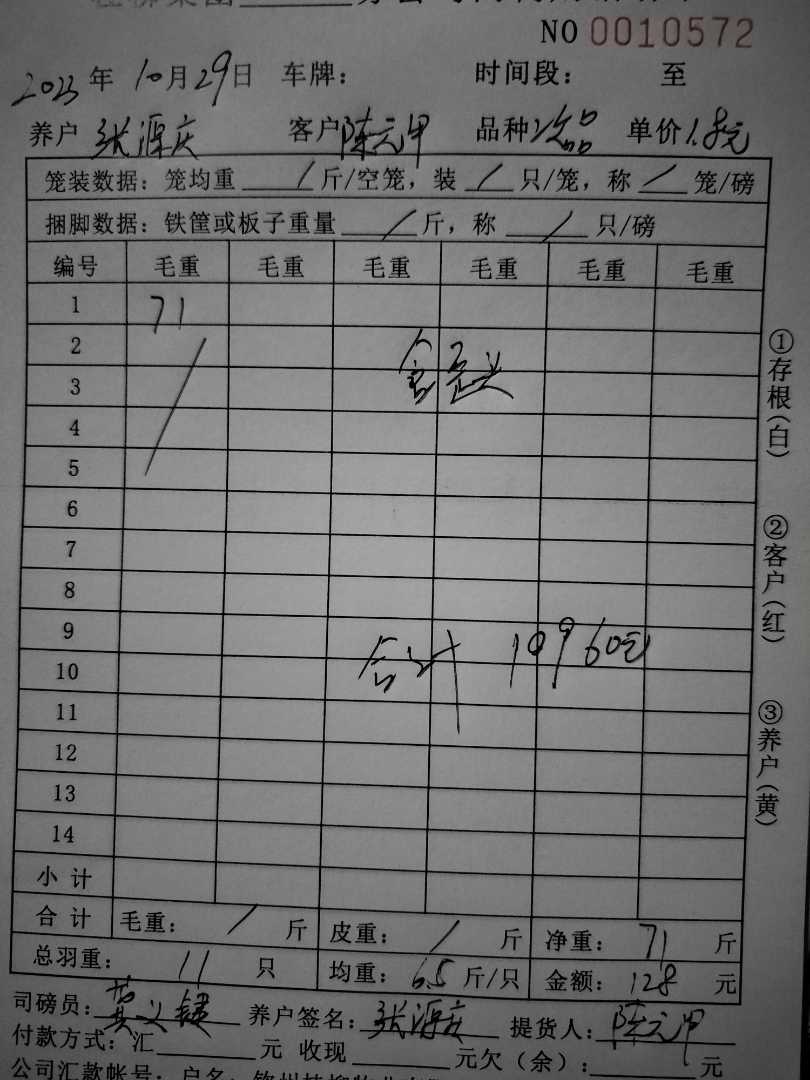 NO 0010572
2023 年 10月29日 车牌: 时间段: 至
养户 张源庆 客户 陈元甲 品种 次品 单价 1.8元
笼装数据: 笼均重 / 斤/空笼, 装 / 只/笼, 称 / 笼/磅
捆脚数据: 铁筐或板子重量 / 斤, 称 / 只/磅
编号 毛重 毛重 毛重 毛重 毛重 毛重
1 71
2
3
4
5
6
7
8
9
合计 19960元
10
11
12
13
14
小计
合计 毛重: / 斤 皮重: / 斤 净重: 71 斤
总羽重: 11 只 均重: 6.5 斤/只 金额: 128 元
司磅员: 黄义键 养户签名: 张源庆 提货人: 陈元甲
付款方式: 汇 元 收现 元欠(余): 元
公司汇款帐号: 户名:
①存根(白)
②客户(红)
③养户(黄)